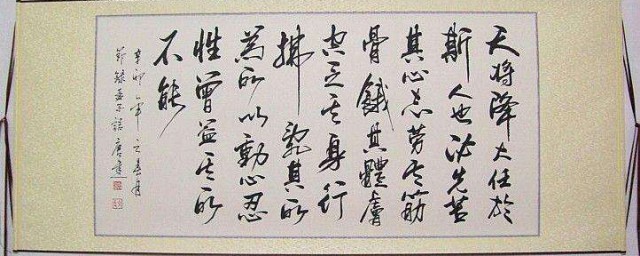 天将降大任於
斯人也必先苦
其心志勞其筋
骨餓其體膚
空乏其身行
拂亂其所
為所以動心忍
性曾益其所
不能
辛卯年之春月
節録孟子語唐建